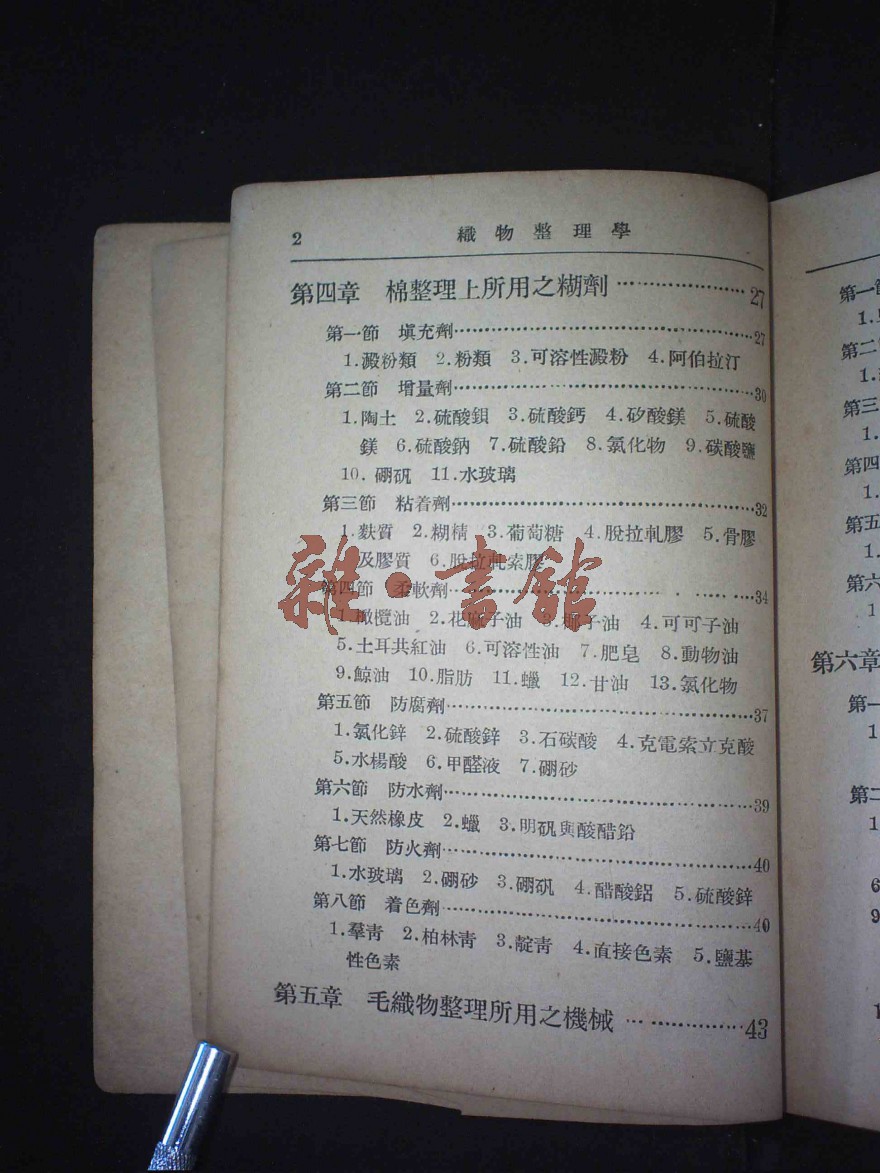 2 織物整理學
第四章 棉整理上所用之糊劑……………………27
第一節 填充劑……………………27
1.澱粉類 2.粉類 3.可溶性澱粉 4.阿伯拉汀
第二節 增量劑……………………30
1.陶土 2.硫酸鋇 3.硫酸鈣 4.矽酸鎂 5.硫酸
鎂 6.硫酸鈉 7.硫酸鉛 8.氯化物 9.碳酸鹽
10.硼矾 11.水玻璃
第三節 粘着劑……………………32
1.麩質 2.糊精 3.葡萄糖 4.脫拉軋膠 5.骨膠
及膠質 6.脫拉軋索膠
第四節 柔軟劑……………………34
1.橄欖油 2.花麻子油 3.椰子油 4.可可子油
5.土耳其紅油 6.可溶性油 7.肥皂 8.動物油
9.鯨油 10.脂肪 11.蠟 12.甘油 13.氯化物
第五節 防腐劑……………………37
1.氯化鋅 2.硫酸鋅 3.石碳酸 4.克電索立克酸
5.水楊酸 6.甲醛液 7.硼砂
第六節 防水劑……………………39
1.天然橡皮 2.蠟 3.明矾與酸醋鉛
第七節 防火劑……………………40
1.水玻璃 2.硼砂 3.硼矾 4.醋酸鋁 5.硫酸鋅
第八節 着色劑……………………40
1.羣靑 2.柏林靑 3.靛靑 4.直接色素 5.鹽基
性色素
第五章 毛織物整理所用之機械……………………43
雜·書館
第一節
1.
第二
1.
第三
1.
第四
1.
第五
1.
第六
1
第六章
第一
1
第二
1
6
9
1